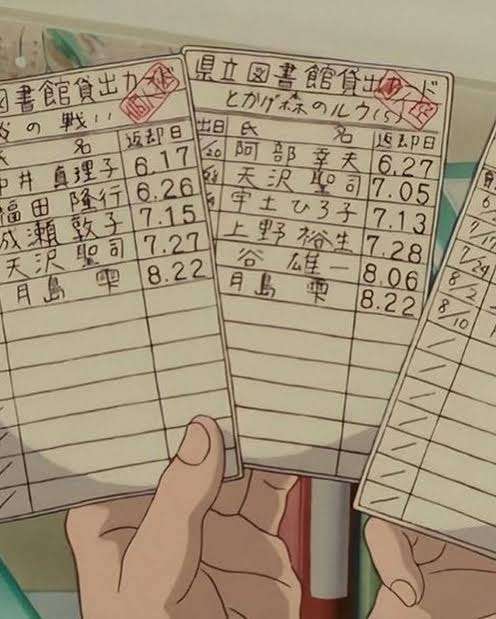 図書館貸出カード
の戦い
氏 名 返却日
中井 真理子 6.17
福田 隆行 6.26
成瀬 敦子 7.15
天沢 聖司 7.27
月島 雫 8.22
県立図書館貸出カード
とかげ森のルウ(5)
出日 氏 名 返却日
6/20 阿部 幸夫 6.27
天沢 聖司 7.05
宇土 ひろ子 7.13
上野 裕生 7.28
谷 雄一 8.06
月島 雫 8.22
7/24
8/2
8/10